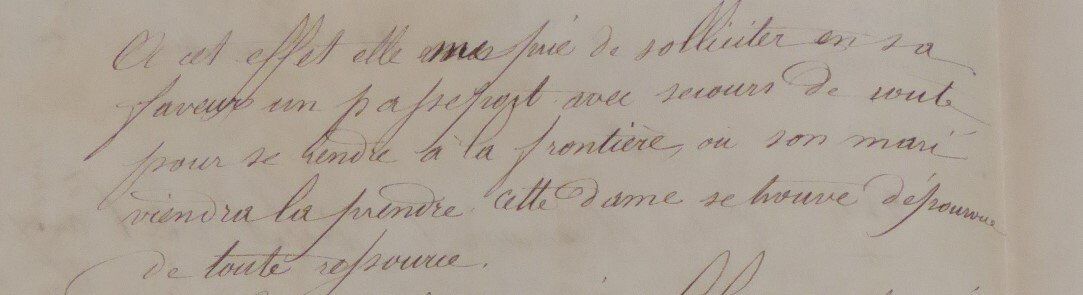 A cet effet elle me prie de solliciter en sa
faveur un passeport avec secours de route
pour se rendre à la frontière, où son mari
viendra la prendre. Cette dame se trouve dépourvue
de toute ressource.